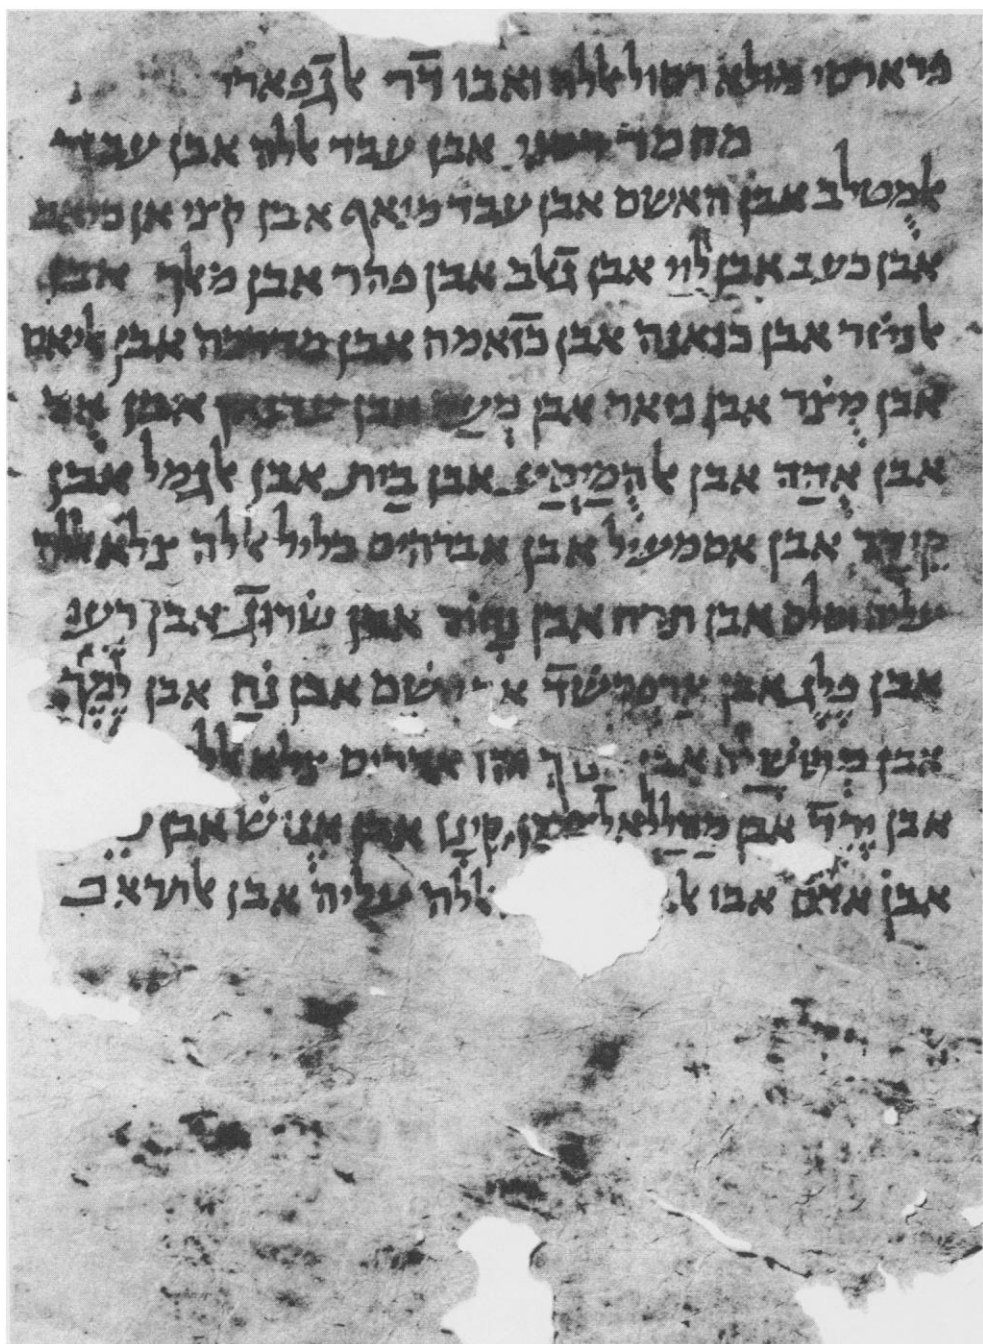 פרארסי מולא רסול אללה ואבו דׄר אלגׄפארי
מחמד אבן עבד אללה אבן עבד
אלמֻטלב אבן האשם אבן עבד מנאף אבן קצי אבן כלאב
אבן כעב אבן לוי אבן גׄאלב אבן פהר אבן מאלך אבן
אלנצׄר אבן כנאנה אבן כׄזאמה אבן מדרכה אבן אליאס
אבן מֻצׄר אבן נזאר אבן מַעַד אבן עדנאן אבן אֻדֻ
אבן אֻדַד אבן אלהֻמַיסַע אבן נַבִית אבן אלגמל אבן
קידר אבן אסמעיל אבן אברהים כליל אללה צלא אללה
עליה וסלם אבן תרח אבן נחור אבן שׂרוגׄ אבן רעו
אבן פֶלֶג אבן ארפכשׁדׄ אבן שׁם אבן נֹחַ אבן לֶמֶך
אבן מתושׁלח אבן חנוך והו אדריס צלא אללה
אבן יֶרֶדׄ אבן מַהֲלַלאֵל אבן קֵינָן אבן אֱנוֹשׁ אבן
אבן אדׄם אבו אללה עליה אבן